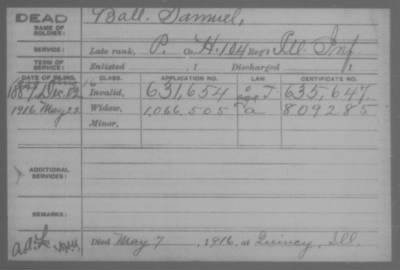 DEAD
NAME OF SOLDIER:
Ball. Samuel,
SERVICE:
Late rank, P. Co. H. 104 Reg't Ill Inf.
TERM OF SERVICE:
Enlisted , 1 Discharged , 1
DATE OF FILING. CLASS. APPLICATION NO. LAW. CERTIFICATE NO.
Dec. Invalid, 631,654 635,647.
1916 May 22 Widow, 1,066,505 809285
Minor,
ADDITIONAL SERVICES:
REMARKS:
Died May 7, 1916, at Quincy, Ill.